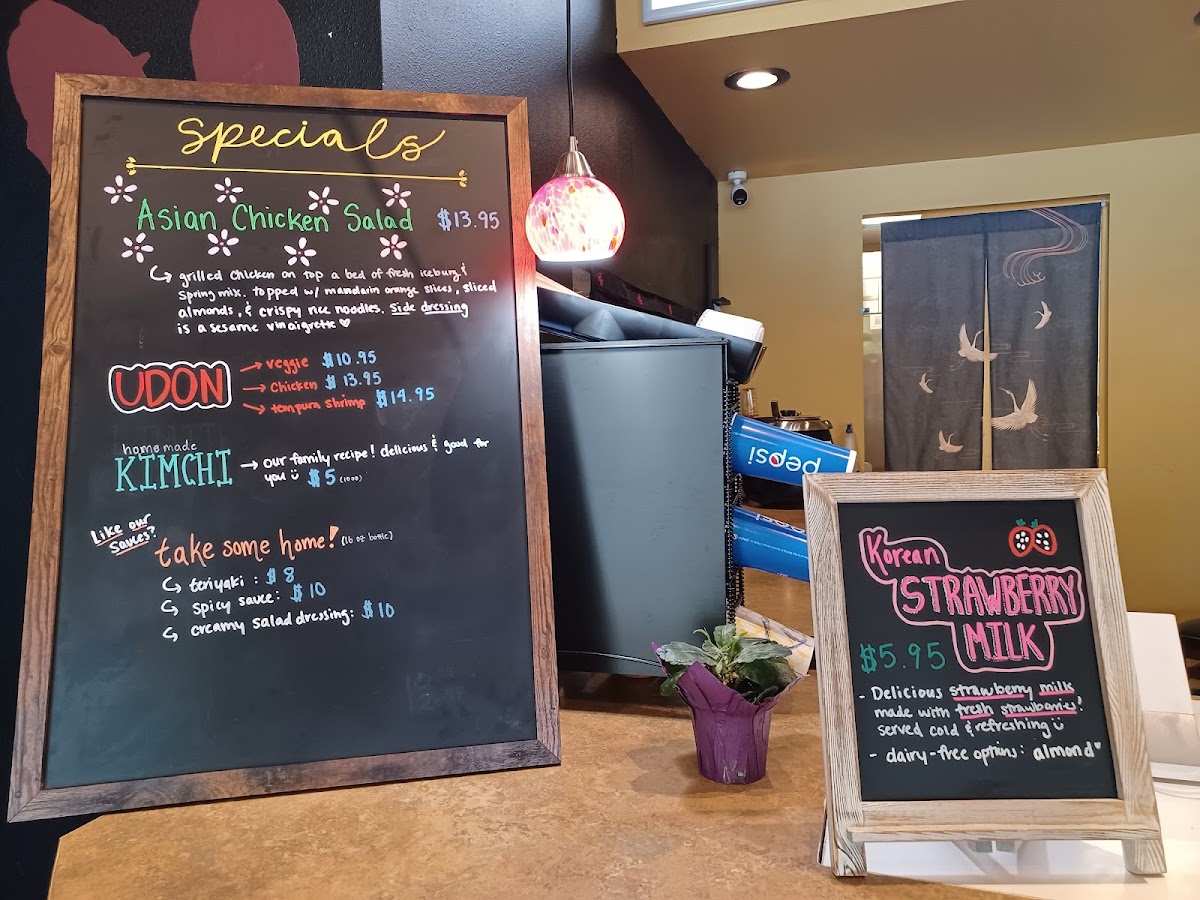 Specials
Asian Chicken Salad $13.95
↳ grilled chicken on top a bed of fresh iceburg &
spring mix. topped w/ mandarin orange slices, sliced
almonds, & crispy rice noodles. Side dressing
is a sesame vinaigrette ♡
UDON
→ veggie $10.95
→ chicken $13.95
→ tempura shrimp $14.95
homemade
KIMCHI → our family recipe! delicious & good for
you ü $5
Like our
sauces?
take some home! (16 oz bottle)
↳ teriyaki: $8
↳ spicy sauce: $10
↳ creamy salad dressing: $10
pepsi
Korean
STRAWBERRY
MILK
$5.95
- Delicious strawberry milk
made with fresh strawberries!
served cold & refreshing ü
- dairy-free options: almond ♡